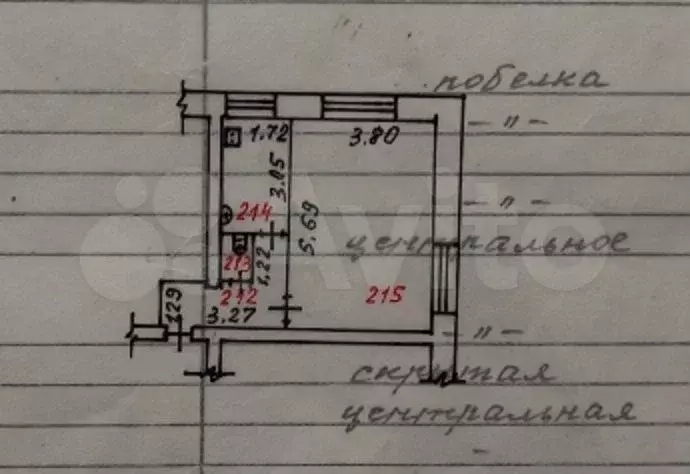 побелка
1.72 3.80
- " -
3.05
- " -
214
5.69
центральное
213
1,22
212
215
129
3.27
- " -
скрытая
центральная
-
Avito